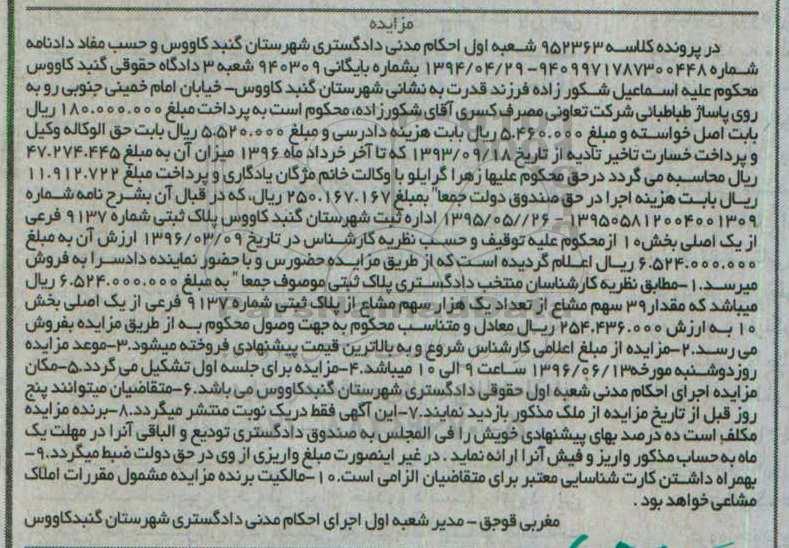 مزایده
در پرونده کلاسه ۹۵۲۳۶۳ شعبه اول احکام مدنی دادگستری شهرستان گنبد کاووس و حسب مفاد دادنامه
شماره ۹۴۰۹۹۷۱۷۸۷۳۰۰۴۴۸ -۱۳۹۴/۰۴/۲۹ بشماره بایگانی ۹۴۰۳۰۹ شعبه ۳ دادگاه حقوقی گنبد کاووس
محکوم علیه اسماعیل شکور زاده فرزند قدرت به نشانی شهرستان گنبد کاووس- خیابان امام خمینی جنوبی رو به
روی پاساژ طباطبائی شرکت تعاونی مصرف کسری آقای شکورزاده، محکوم است به پرداخت مبلغ ۱۸۰.۰۰۰.۰۰۰ ریال
بابت اصل خواسته و مبلغ ۵.۴۶۰.۰۰۰ ریال بابت هزینه دادرسی و مبلغ ۵.۵۲۰.۰۰۰ ریال بابت حق الوکاله وکیل
و پرداخت خسارت تاخیر تادیه از تاریخ ۱۳۹۳/۰۹/۱۸ که تا آخر خرداد ماه ۱۳۹۶ میزان آن به مبلغ ۴۷.۲۷۴.۴۴۵
ریال محاسبه می گردد درحق محکوم علیها زهرا گرایلو با وکالت خانم مژگان یادگاری و پرداخت مبلغ ۱۱.۹۱۲.۷۲۲
ریال بابت هزینه اجرا در حق صندوق دولت جمعا" بمبلغ ۲۵۰.۱۶۷.۱۶۷ ریال، که در قبال آن بشرح نامه شماره
۱۳۹۵۰۵۸۱۲۰۰۴۰۰۱۳۰۹ -۱۳۹۵/۰۵//۲۶ اداره ثبت شهرستان گنبد کاووس پلاک ثبتی شماره ۹۱۳۷ فرعی
از یک اصلی بخش۱۰ ازمحکوم علیه توقیف و حسب نظریه کارشناس در تاریخ ۱۳۹۶/۰۳/۰۹ ارزش آن به مبلغ
۶.۵۲۴.۰۰۰.۰۰۰ ریال اعلام گردیده است که از طریق مزایده حضورس و با حضور نماینده دادسرا به فروش
میرسد.۱-مطابق نظریه کارشناسان منتخب دادگستری پلاک ثبتی موصوف جمعا" به مبلغ ۶.۵۲۴.۰۰۰.۰۰۰ ریال
میباشد که مقدار۳۹ سهم مشاع از تعداد یک هزار سهم مشاع از پلاک ثبتی شماره ۹۱۳۷ فرعی از یک اصلی بخش
۱۰ به ارزش ۲۵۴.۴۳۶.۰۰۰ ریال معادل و متناسب محکوم به جهت وصول محکوم به از طریق مزایده بفروش
می رسد.۲-مزایده از مبلغ اعلامی کارشناس شروع و به بالاترین قیمت پیشنهادی فروخته میشود.۳-موعد مزایده
روزدوشنبه مورخه۱۳۹۶/۰۶/۱۳ ساعت ۹ الی ۱۰ میباشد.۴-مزایده برای جلسه اول تشکیل می گردد.۵-مکان
مزایده اجرای احکام مدنی شعبه اول حقوقی دادگستری شهرستان گنبدکاووس می باشد.۶-متقاضیان میتوانند پنج
روز قبل از تاریخ مزایده از ملک مذکور بازدید نمایند.۷-این آگهی فقط دریک نوبت منتشر میگردد.۸-برنده مزایده
مکلف است ده درصد بهای پیشنهادی خویش را فی المجلس به صندوق دادگستری تودیع و الباقی آنرا در مهلت یک
ماه به حساب مذکور واریز و فیش آنرا ارائه نماید . در غیر اینصورت مبلغ واریزی از وی در حق دولت ضبط میگردد.۹-
بهمراه داشتن کارت شناسایی معتبر برای متقاضیان الزامی است.۱۰-مالکیت برنده مزایده مشمول مقررات املاک
مشاعی خواهد بود .
مغربی قوجق - مدیر شعبه اول اجرای احکام مدنی دادگستری شهرستان گنبدکاووس